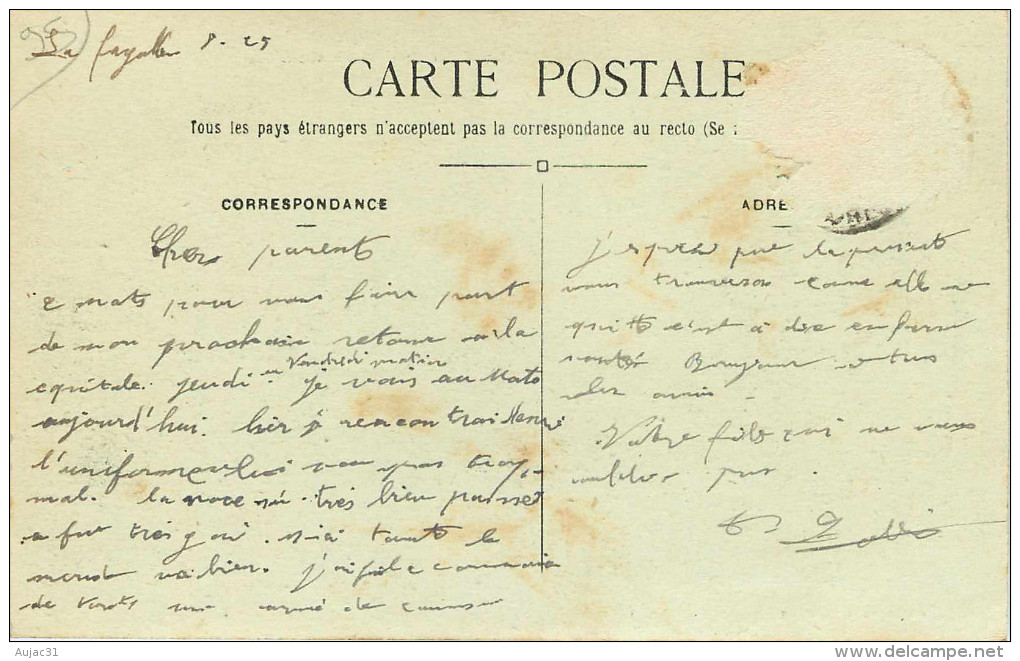 La 8-25
CARTE POSTALE
Tous les pays étrangers n'acceptent pas la correspondance au recto (Se :
CORRESPONDANCE
Chers parents
2 mots pour vous faire part
de mon prochain retour a la
capitale. jeudi ou Vendredi matin je vais au Mato
aujourd'hui. hier j'é rencontrai Henri
l'uniforme lui vas pas trop
mal. la noce sé très bien passée
a fut très gai. ici tout le
monde va bien. J'ai fait connai
de une armé de
ADRE
J'espère que la présente
vous trouvera comme elle me
quitte c'est à dire en bonne
santé Bonjour a tous
les amis
Votre fils qui ne vous
oublie pas.
Aujac31
http://www.delcampe.net